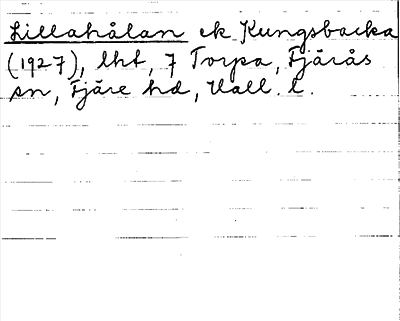 Lillahålan ek Kungsbacka
(1927), lht, 7 Torpa, Fjärås
sn, Fjäre hd, Hall. l.